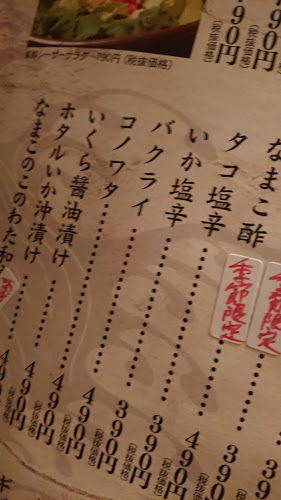 シーザーサラダ 790円(税抜価格)
490円(税抜価格)
490円(税抜価格)
なまこ酢
季節限定
タコ塩辛
季節限定
390円
いか塩辛 390円(税抜価格)
バクライ 490円(税抜価格)
コノワタ 390円(税抜価格)
いくら醤油漬け 390円(税抜価格)
ホタルいか沖漬け 490円(税抜価格)
なまこのこのわた和 490円(税抜価格)